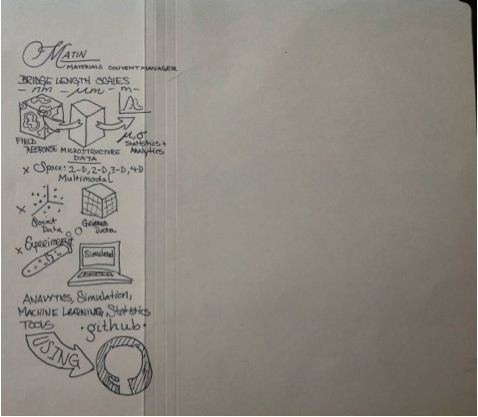 MATIN
MATERIALS CONTENT MANAGER
BRIDGE LENGTH SCALES
- nm - μm - m -
FIELD RESPONSE
MICROSTRUCTURE DATA
μ,σ
Statistics + Analytics
x Space: 1-D, 2-D, 3-D, 4-D
Multimodal
x Point Data
Gridded Data
x Experiment
Simulated
ANALYTICS, Simulation,
MACHINE LEARNING, Statistics
TOOLS
·github·
USING